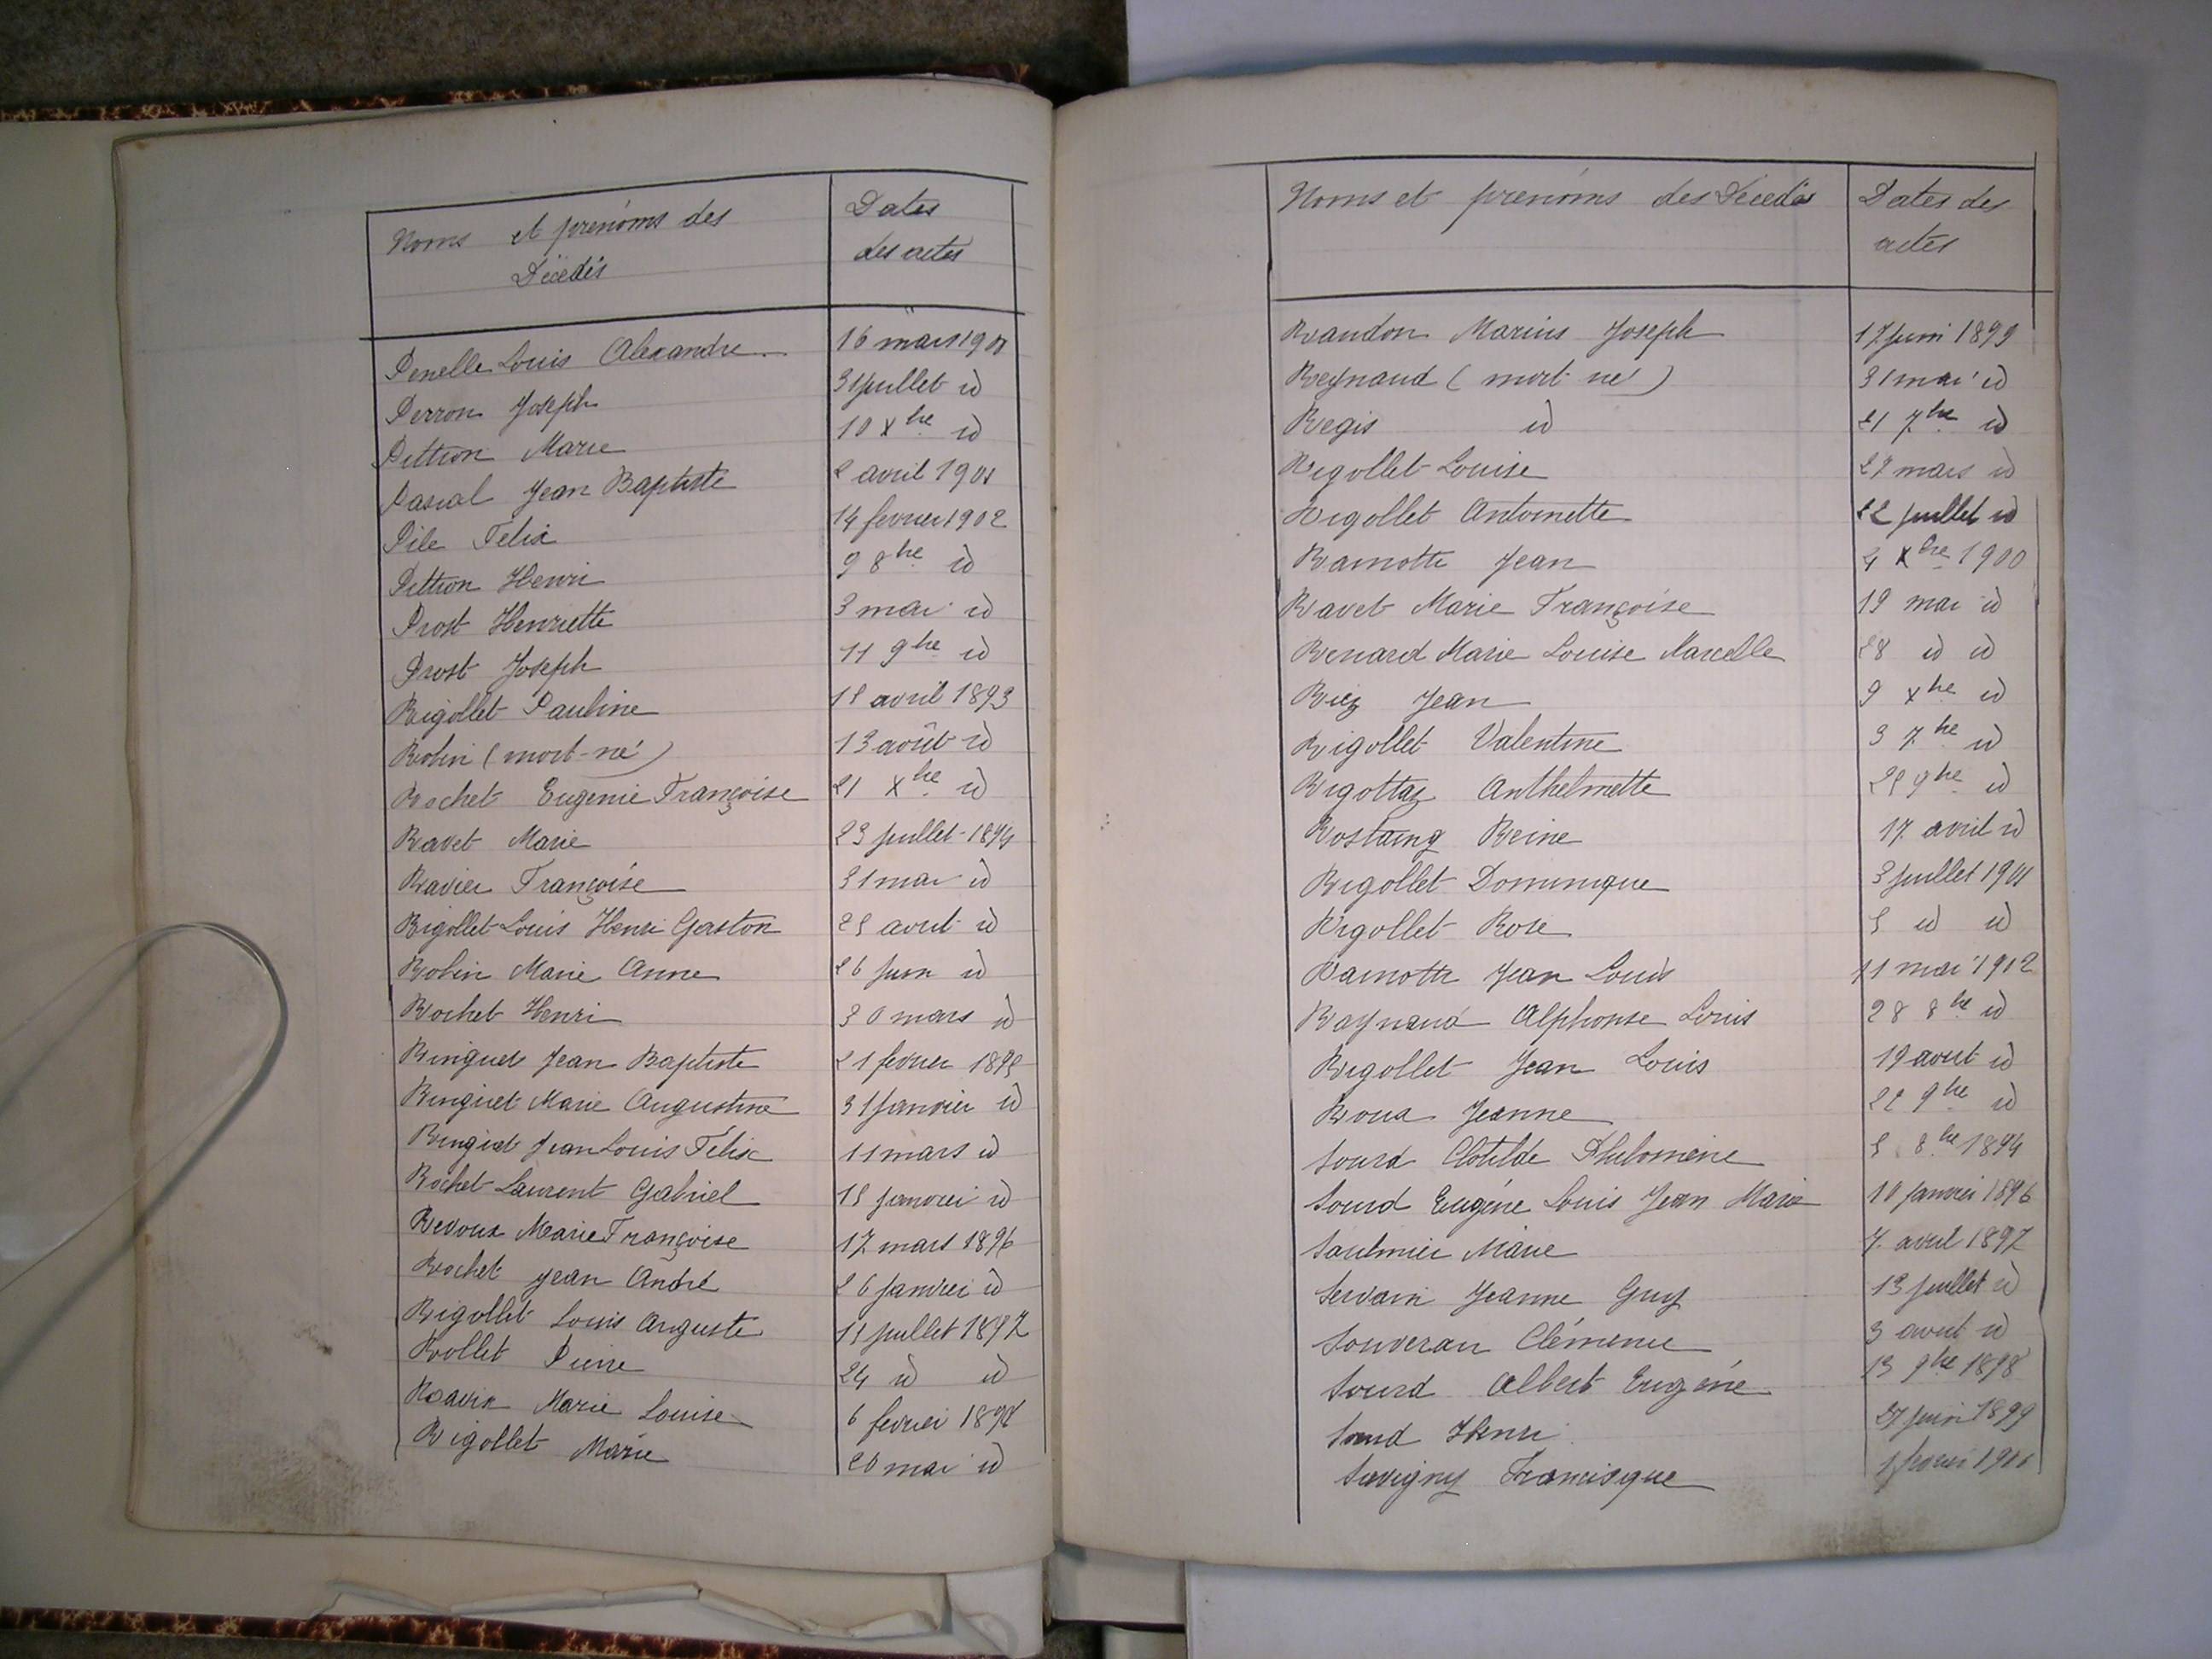 Noms et prénoms des
Décédés
Dates
des actes
Penelle Louis Alexandre 16 mars 1900
Perron Joseph 31 juillet id
Pittion Marie 10 Xbre id
Pascal Jean Baptiste 2 avril 1901
Pile Felix 14 fevrier 1902
Pittion Henri 9 8bre id
Prost Henriette 3 mai id
Prost Joseph 11 9bre id
Rigollet Pauline 15 avril 1893
Robin (mort-né) 13 août id
Rochet Eugenie Françoise 21 Xbre id
Ravet Marie 23 juillet 1894
Ravier Françoise 31 mai id
Rigollet Louis Henri Gaston 25 avril id
Robin Marie Anne 26 juin id
Rochet Henri 30 mars id
Ringuet Jean Baptiste 21 fevrier 1895
Ringuet Marie Augustine 31 janvier id
Ringuet Jean Louis Félix 11 mars id
Rochet Laurent Gabriel 15 janvier id
Revoux Marie Françoise 17 mars 1896
Rochet Jean André 26 janvier id
Rigollet Louis Auguste 15 juillet 1897
Rollet Pierre 24 id id
Marie Louise 6 fevrier 1898
Rigollet Marie 20 mai id
Noms et prénoms des Décédés
Dates des
actes
Raudon Marius Joseph 17 juin 1899
Reynaud (mort né) 31 mai id
Regis id 21 7bre id
Rigollet Louise 29 mars id
Rigollet Antoinette 22 juillet id
Ramotte Jean 4 Xbre 1900
Ravet Marie Françoise 19 mai id
Renard Marie Louise Marcelle 28 id id
Riez Jean 9 Xbre id
Rigollet Valentine 3 7bre id
Rigottaz Anthelmette 25 9bre id
Rostaing Reine 17 avril id
Rigollet Dominique 3 juillet 1901
Rigollet Rose 5 id id
Ramotte Jean Louis 11 mai 1902
Raynaud Alphonse Louis 28 8bre id
Rigollet Jean Louis 19 aout id
Roux Jeanne 22 9bre id
Sourd Clotilde Philomène 5 8bre 1894
Sourd Eugène Louis Jean Marie 10 janvier 1896
Saulnier Marie 7 avril 1897
Servain Jeanne Guy 13 juillet id
Souveran Clémence 3 aout id
Sourd Albert Eugène 13 9bre 1898
Sourd Henri 27 juin 1899
Savigny Francisque fevrier